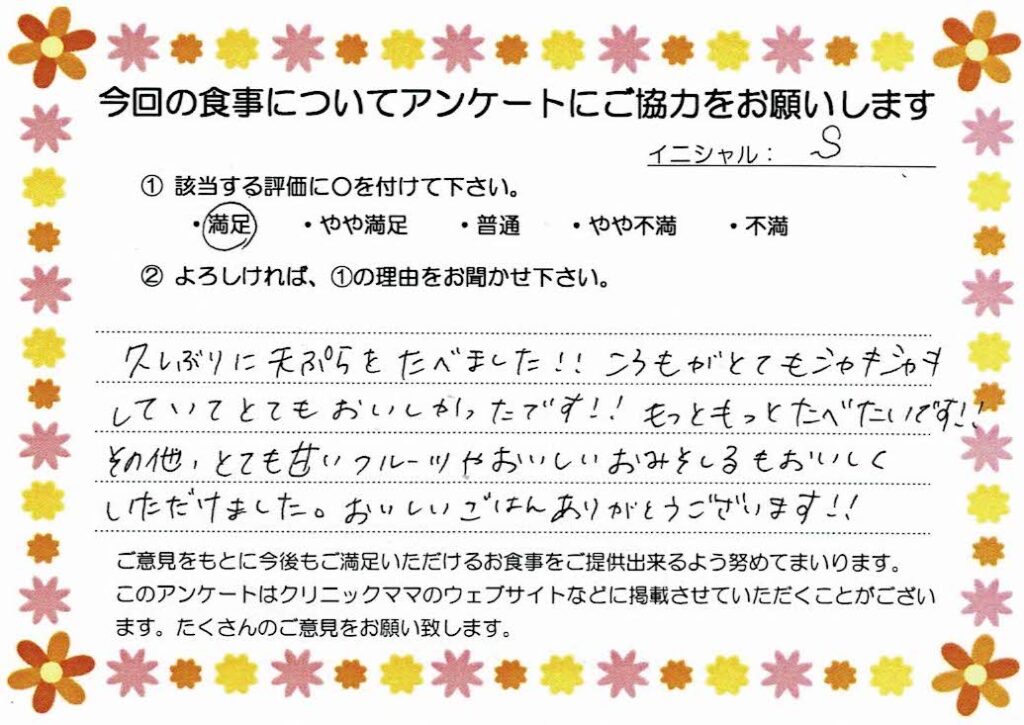 今回の食事についてアンケートにご協力をお願いします
イニシャル： S
① 該当する評価に〇を付けて下さい。
・満足 ・やや満足 ・普通 ・やや不満 ・不満
② よろしければ、①の理由をお聞かせ下さい。
久しぶりに天ぷらをたべました!! ころもがとてもシャキシャキ
していてとてもおいしかったです!! もっともっとたべたいです!!
その他、とても甘いフルーツやおいしいおみそしるもおいしく
いただけました。おいしいごはんありがとうございます!!
ご意見をもとに今後もご満足いただけるお食事をご提供出来るよう努めてまいります。
このアンケートはクリニックママのウェブサイトなどに掲載させていただくことがござい
ます。たくさんのご意見をお願い致します。